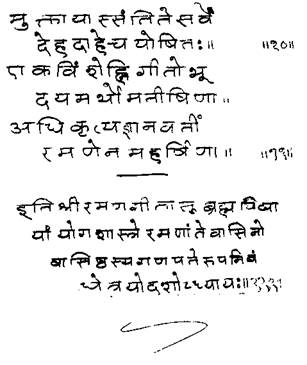 मुक्तायास्संतितेसर्वे
देहदाहेचयोषितः॥ ॥१०॥
एकविंशेह्निगीतोभू
दयमर्थोमनीषिणा॥
अधिकृत्यज्ञानवतीं
रमणेनमहर्षिणा॥ ॥११॥
इतिश्रीरमणगीतासूब्रह्मविद्या
यांयोगशास्त्रेरमणांतेवासिनो
वासिष्ठस्यगणपतेरुपनिबं
धेत्रयोदशोध्यायः॥१३॥